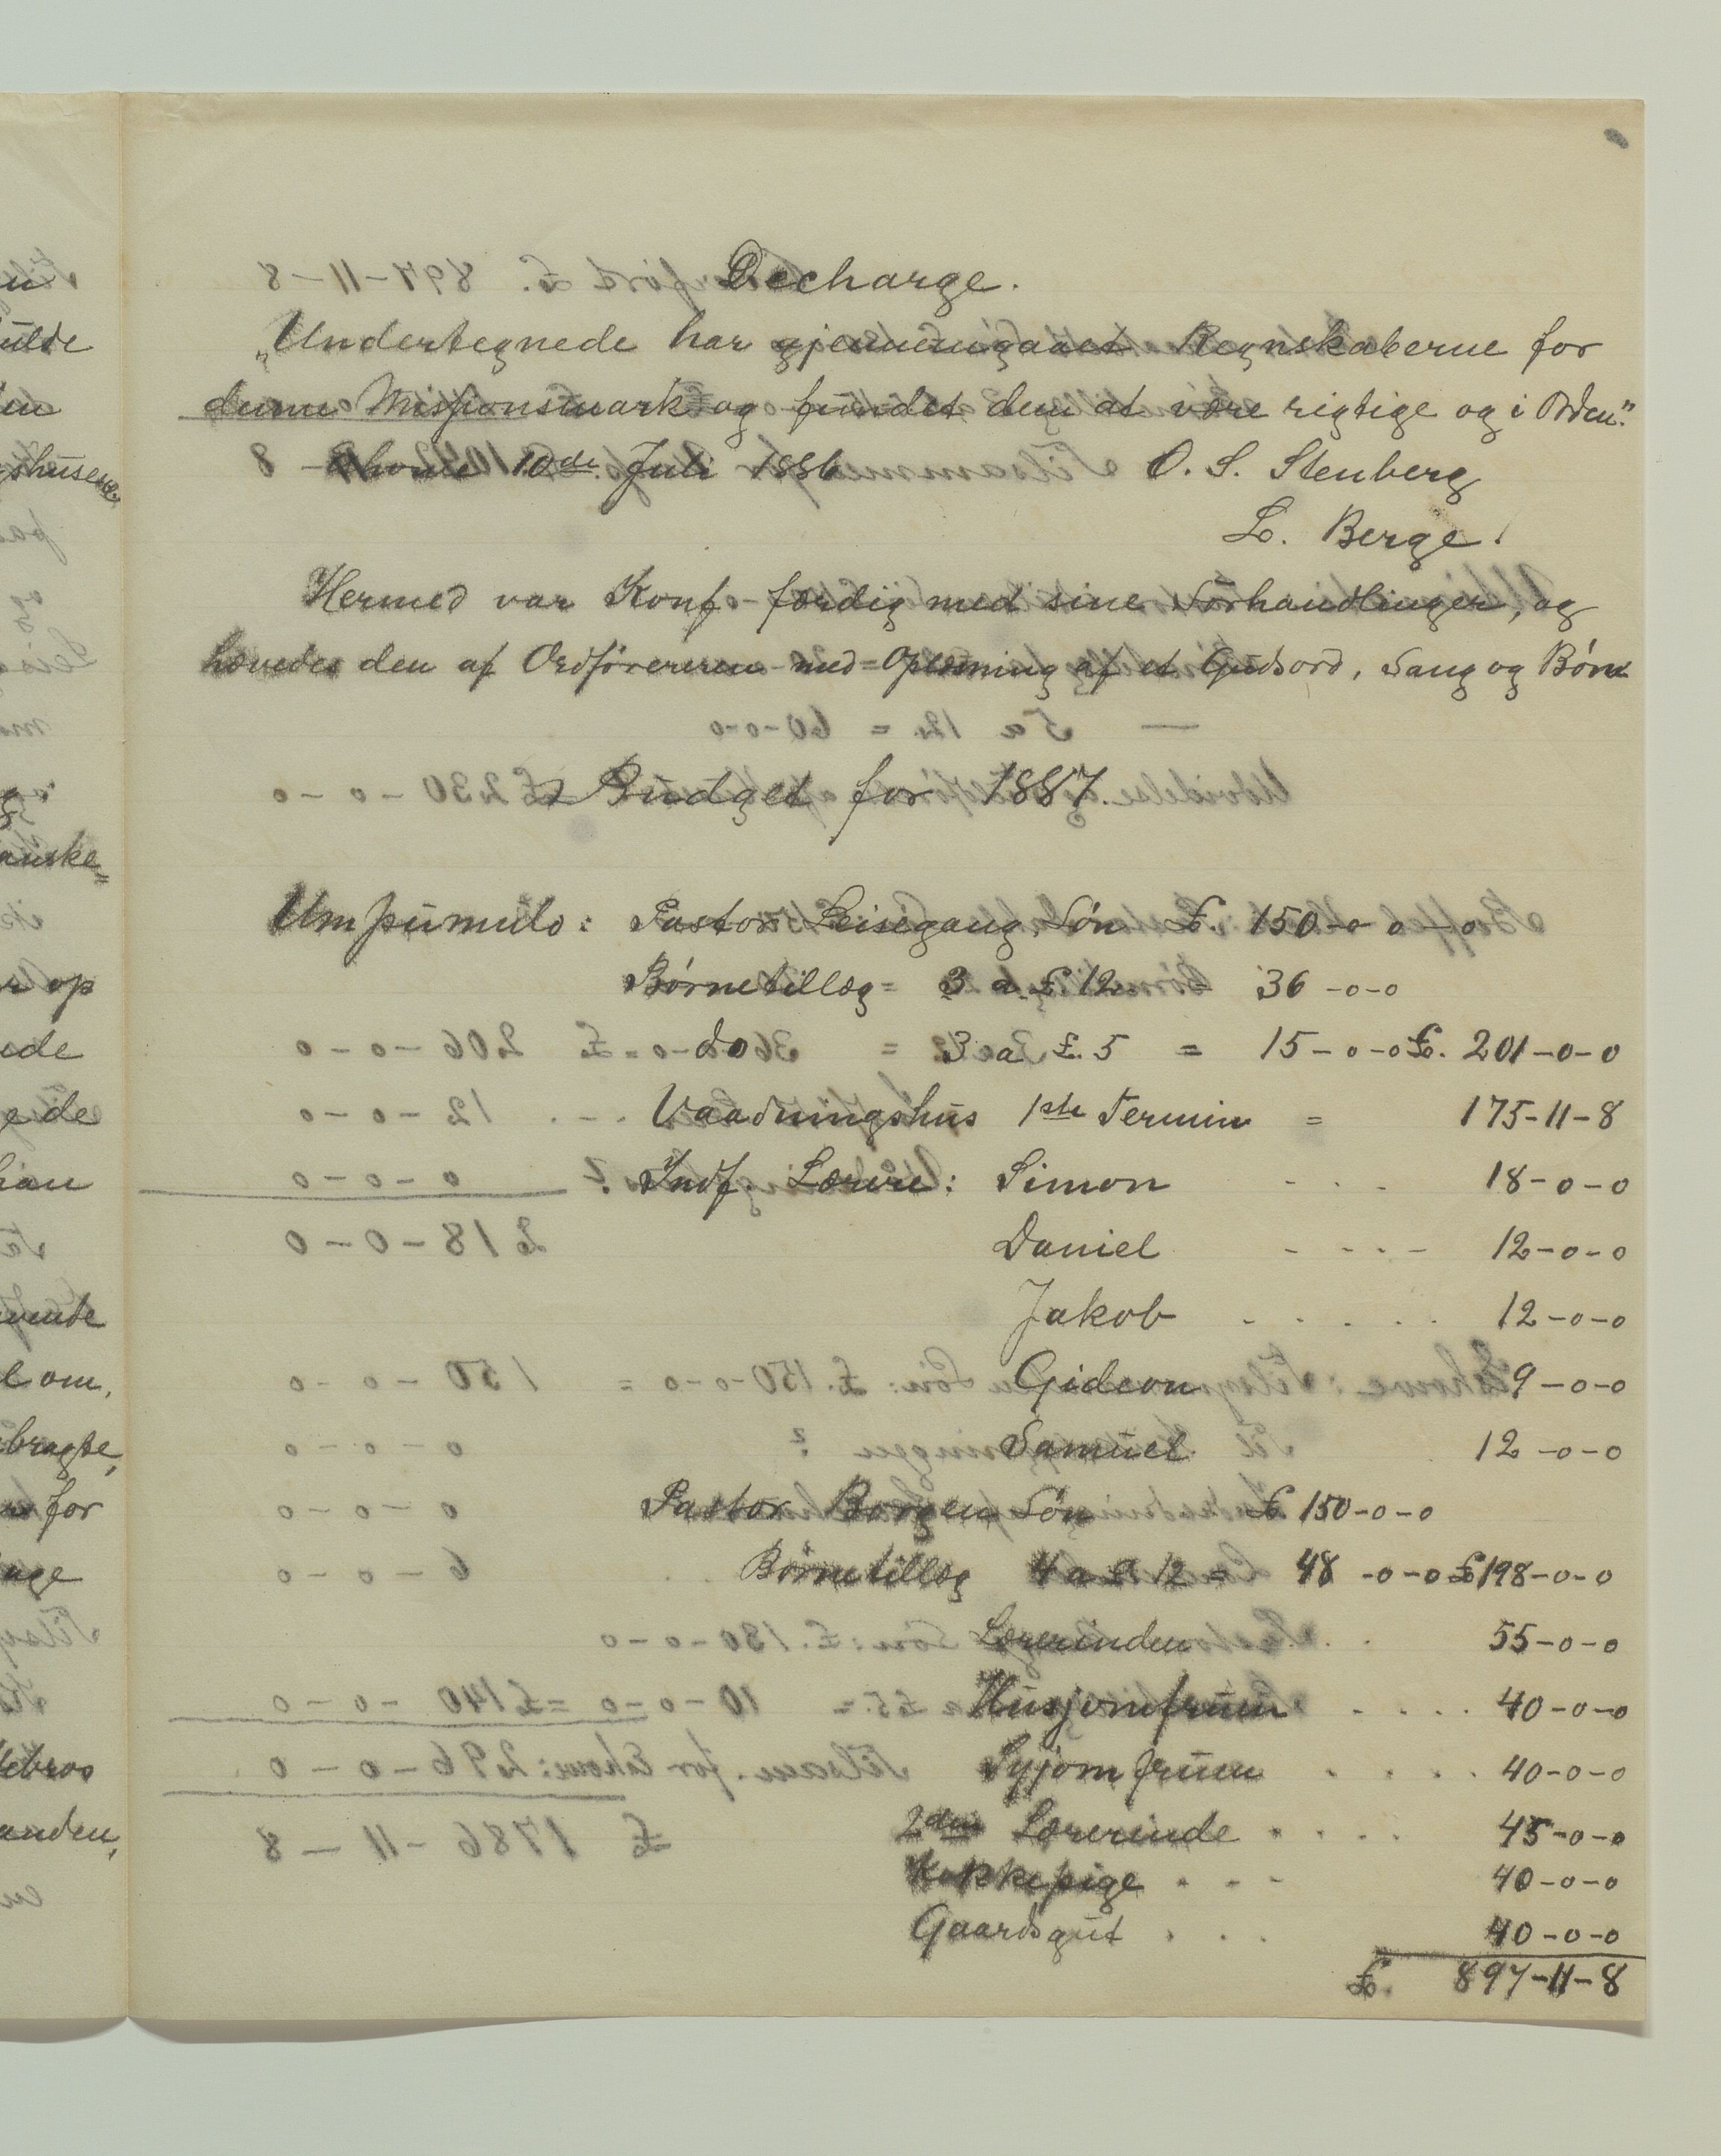 Decharge.
„Undertegnede har gjennemgaaet Regnskaberne for
denne Missionsmark og fundet dem at være rigtige og i Orden."
Ekowe 10de Juli 1886 O. S. Stenberg
L. Berge.
Hermed var Konf. færdig med sine Forhandlinger, og
hævedes den af Ordföreren med Oplæsning af et Gudsord, Sang og Bön
Budget for 1887.
Umpumulo: Pastor Leisegang, Lön £. 150-o-o
Børnetillæg = 3 a £ 12 = 36-o-o
do 3 a £. 5 = 15-o-o £. 201-o-o
Vaaningshus 1ste Termin = 175-11-8
Indf. Lærere: Simon - - - 18-o-o
Daniel - - - - 12-o-o
Jakob . . . . . 12-o-o
Gideon 9-o-o
Samuel 12-o-o
Pastor Borgen Lön £ 150-o-o
Børnetillæg 4 a £ 12 = 48-o-o £198-o-o
Lærerinden . . 55-o-o
Husjomfruen . . . . 40-o-o
Syjomfruen . . . . 40-o-o
2den Lærerinde . . . . 45-o-o
Kokkepige . . . 40-o-o
Gaardsgut . . . 40-o-o
£. 897-11-8